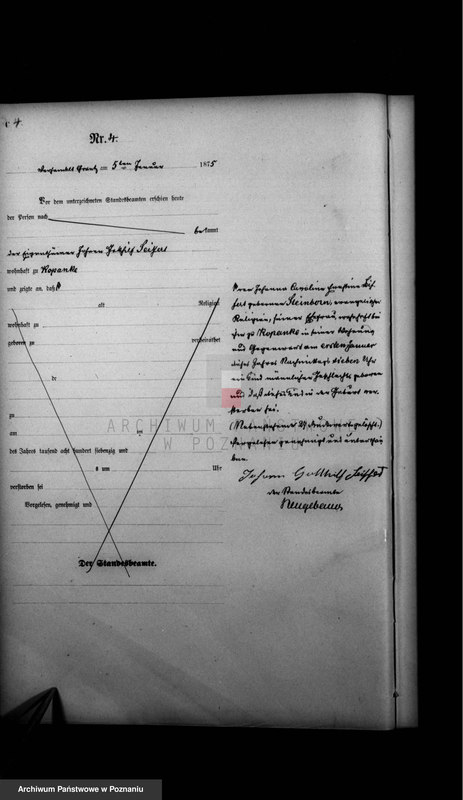 4.
Nr. 4.
am 5ten Januar 1875
Vor dem unterzeichneten Standesbeamten erschien heute
der Person nach
bekannt
der Eigenthümer Johann Seifert
wohnhaft zu Kopanke
und zeigte an, daß
alt Religion
wohnhaft zu
geboren zu verheirathet
de
zu
am
des Jahres tausend acht hundert siebenzig und
um Uhr
verstorben sei
Vorgelesen, genehmigt und
Der Standesbeamte.
Johanna Caroline Ernestine
geborene Steinborn, evangelischer
Religion, seiner Ehefrau wohnhaft bei
ihm zu Kopanke in seiner Wohnung
und Gegenwart am ersten Januar
dieses Jahres Nachmittags sieben Uhr
ein Kind männlichen Geschlechts geboren
und daß dieses Kind in der Geburt ver-
storben sei.
Vorgelesen genehmigt und unterschrie-
ben
Johann Gottlieb Seiffert
der Standesbeamte
Neugebauer
ARCHIWUM PAŃSTWOWE
W POZNANIU
Archiwum Państwowe w Poznaniu